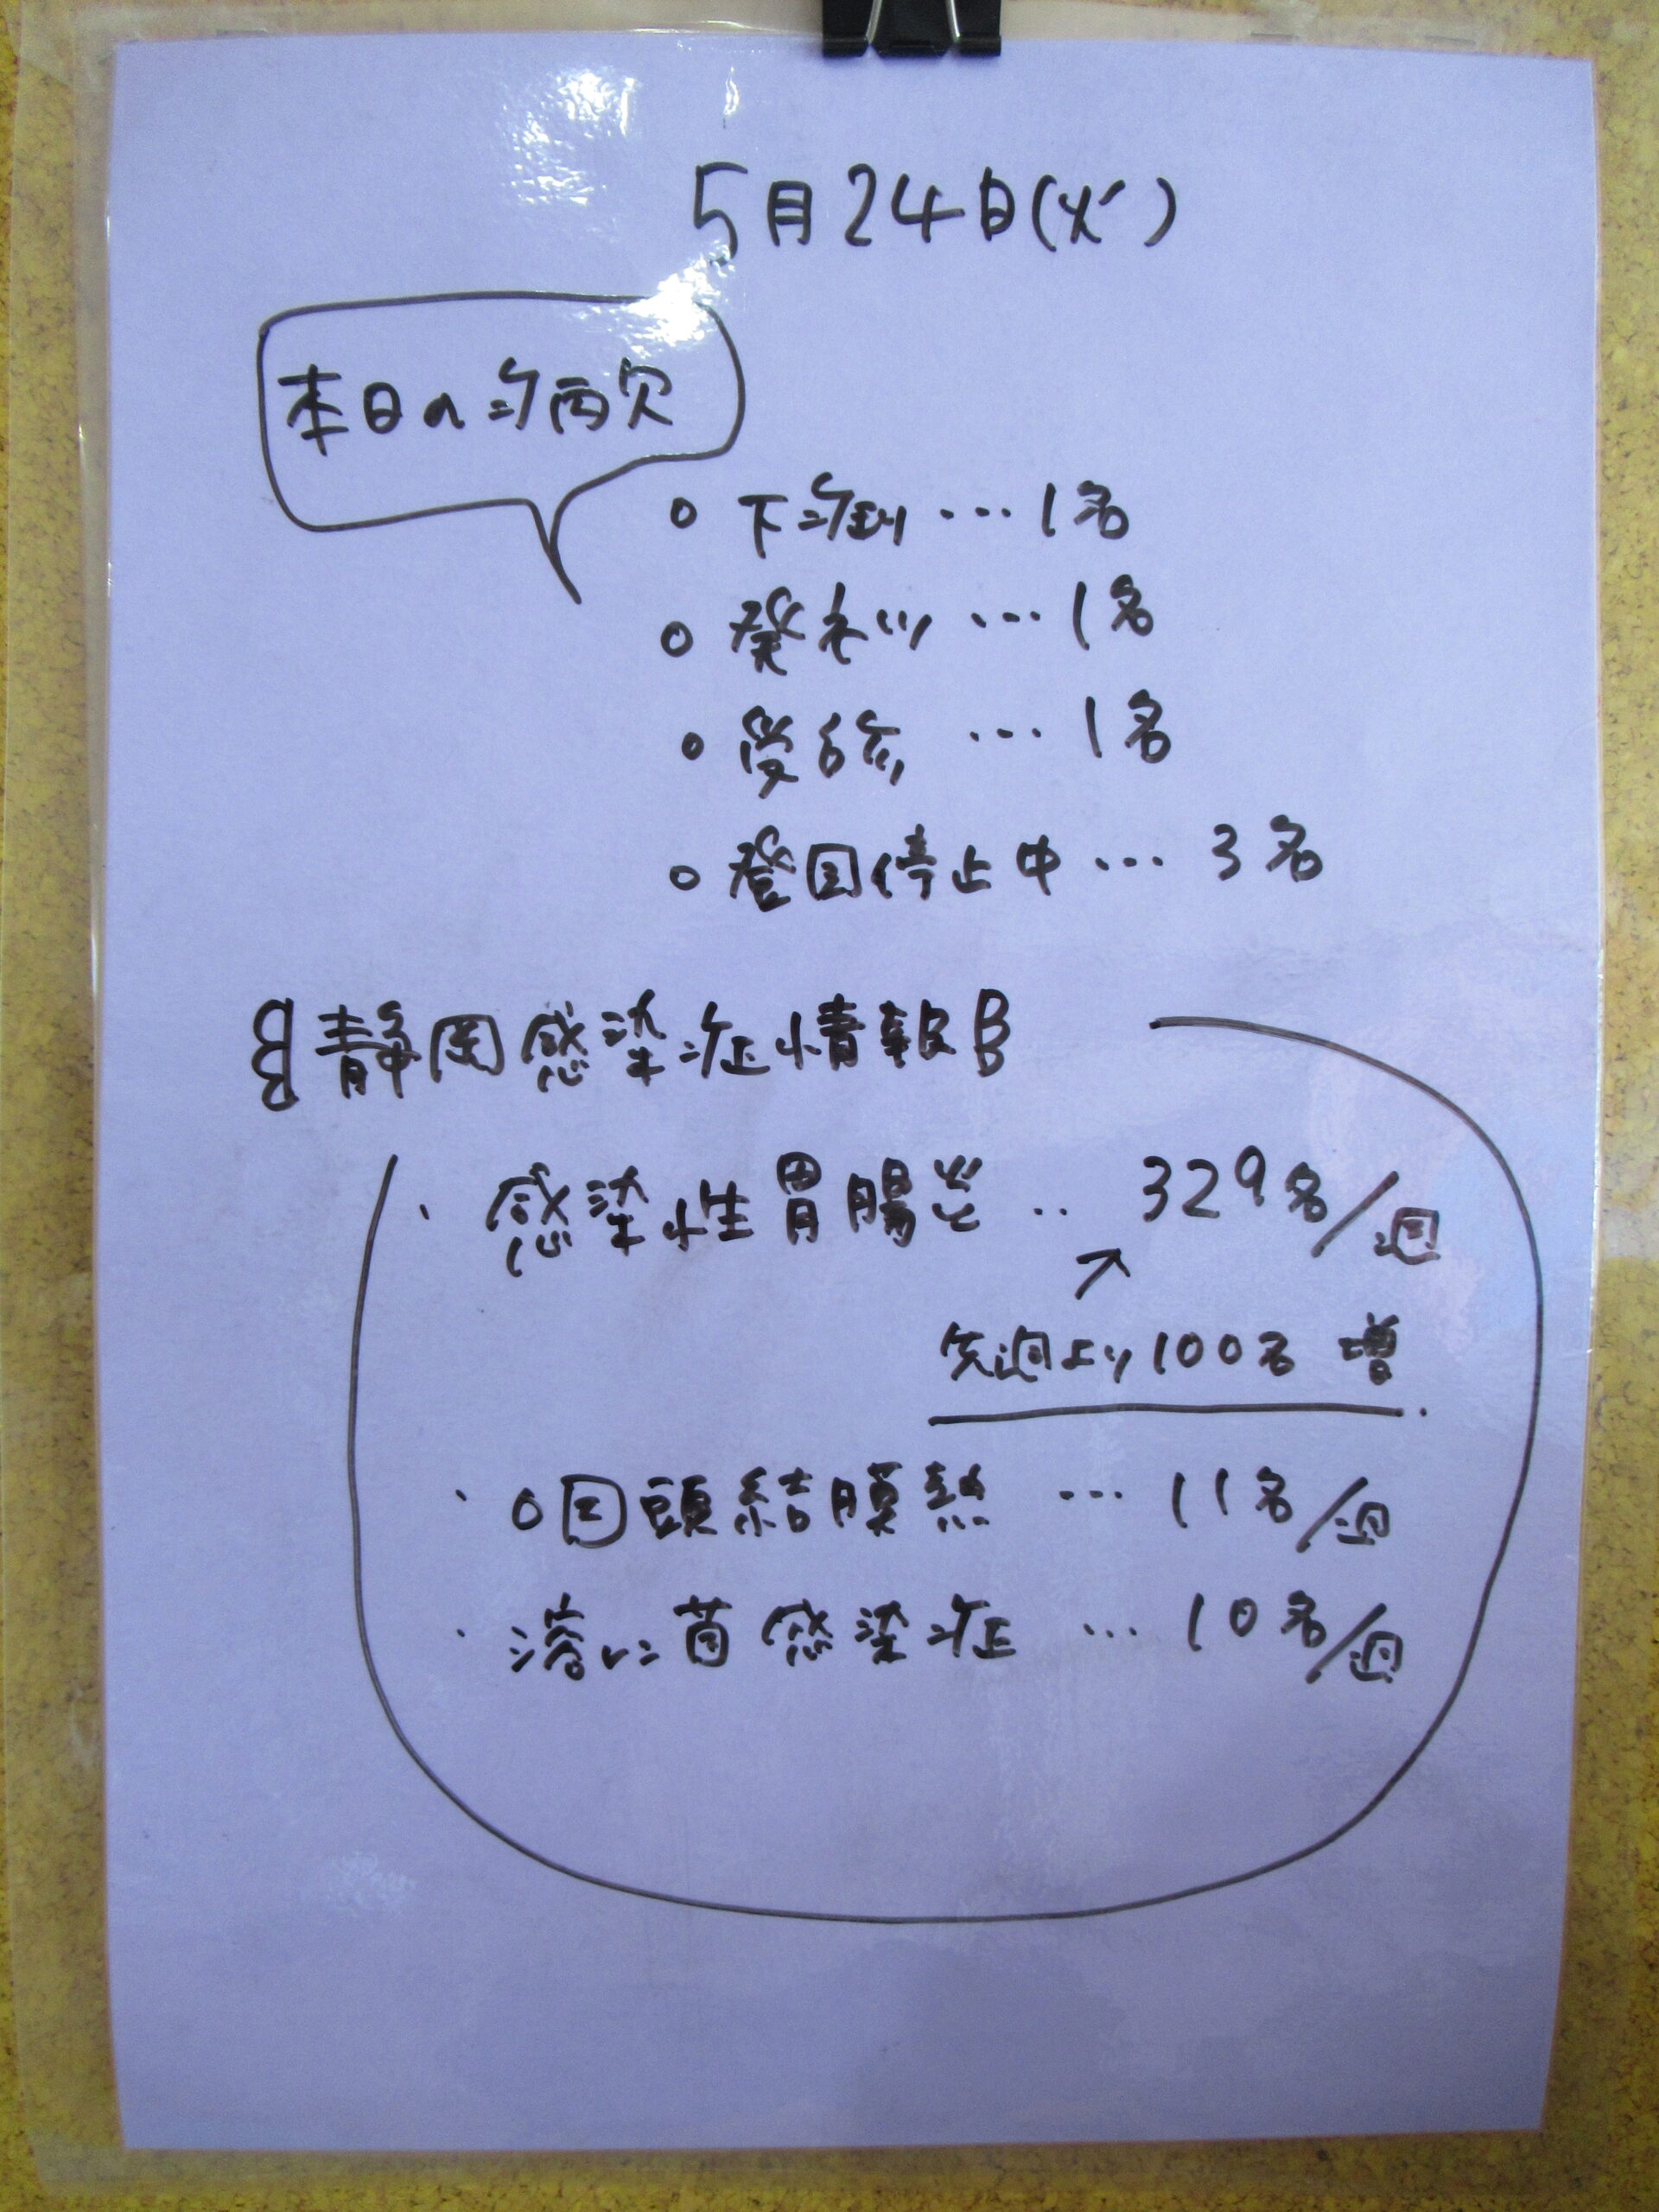 5月24日(火)
本日の病欠
○ 下痢 … 1名
○ 発ネツ … 1名
○ 受診 … 1名
○ 登園停止中 … 3名
静岡感染症情報
・ 感染性胃腸炎 ‥ 329名/週
↗
先週より100名 増
・ 咽頭結膜熱 … 11名/週
・ 溶レン菌感染症 … 10名/週